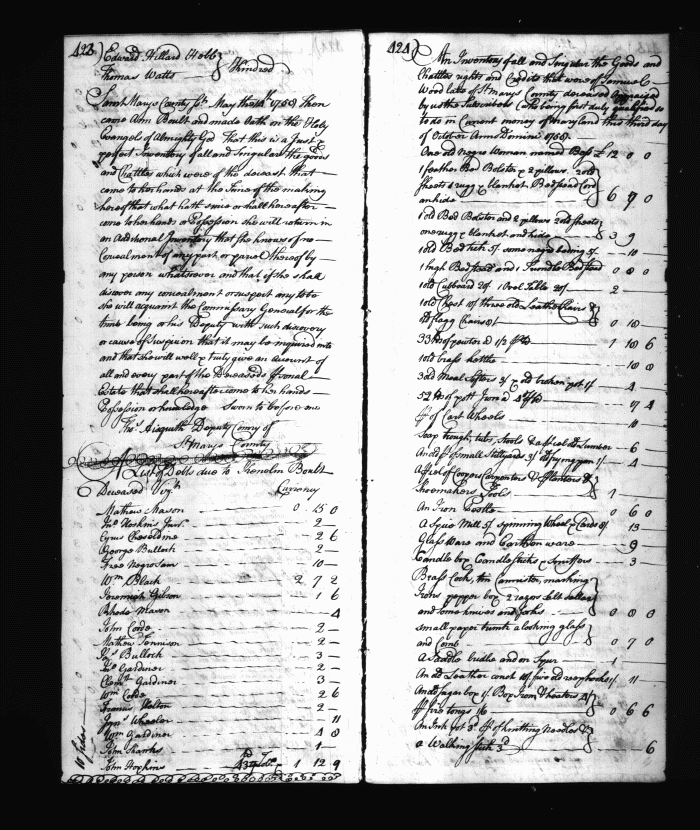 423
Edward Hillard Hebb
Thomas Watts } Kindred
Saint Marys County Sct. May the 1768 Then
came Ann Boult and made Oath on the Holy
Evangels of Almighty God That this is a Just &
perfect Inventory of all and Singular the goods
and Chattles which were of the deceased that
came to her hands at the time of the making
hereof that what hath since or shall hereafter
come to her hands or Possession she will return in
an Additional Inventory that she knows of no
Concealment of any part or parcel thereof by
any person whatsoever and that if she shall
discover any concealment or suspect any to be
she will acquaint the Commissary General for the
time being or his Deputy with such discovery
or cause of suspicion that it may be inquired into
and that she will well & truly give an Account of
all and every part of the Deceaseds Personal
Estate that shall hereafter come to her hands
Possession or knowledge Sworn to before me
Thos. Aisquith Deputy Comry of
St Marys County
A List of Debts due to Kenelm Boult
Deceased Viz. Currency
Mathew Mason 0 15 0
Jno Hoskins Junr. 2 —
Cyrus 2 6
George Bullock 2 —
Free Negro Sam 10 —
Wm Black 2 7 2
Jeremiah Gibson 1 6
Rhode Mason 4
John Code 2 —
Mathew Tennison 2 —
Js Bullock 3 —
Jno Gardiner 2 —
Clemt. Gardiner 3 —
Wm Code 2 6
Francis 2 —
Wheeler 11
Wm Gardiner 4 8
John Shanks 1 —
John Hopkins 1 12 9
424
An Inventory of all and Singular the Goods and
Chattles rights and Credits that were of Samuel
Wood late of St Marys County deceased Appraised
by us the Subscribers each being first duly qualified so
to do in Current money of Maryland this third day
of October Anno Domini 1768
One old Negro Woman named Bess £ 12 0 0
1 feather Bed Bolster & 2 pillows 2 old
Sheets 1 rugg & blanket Bedstead Cord
and hide } 6 7 0
1 old Bed Bolster and 2 pillows 2 old sheets
one rugg & blanket and hide } 3 9
1 old Bed tick 5/ some negro beding 5/ 10 —
1 high Bedstead and 1 Trundle Bedstead 0 8 0
1 old Cubboard 20/ 1 Oval Table 20/ 2
1 old Chest 10/ three old Leather Chairs
flagg Chairs } 0 18 —
33 lb of pewter 1 10 6
1 old brass kettle 10 0
3 old Meal Sifters 3/ & old broken pot 1/ 4
52 lb of pott Iron 17 4
pr of Cart Wheels 10
Soap trough, tubs, stools & a pcl old Lumber 6
An old pr Small Stillyards 3/ old frying pan 1/ 4
A pcl of Coopers Carpenters & Planters &
Shoemakers Tools } 1
An Iron 0 6 0
A Spice Mill 5/ Spinning Wheel & Cards 8/ 13
Glass Ware and Earthen ware 9
Candle box Candlesticks & Snuffers 3 —
Brass Cock, tin Cannister, marking
Irons pepper box 2 razors Salt Sellar
and some knives and forks } 0 8 0
small paper trunk a looking glass
and Comb } 0 7 0
A Saddle bridle and on Spur 1
An old Leather 10/ five old reaphooks 1/ 11 —
And Sugar box 1/ Box Iron & heaters 4/
pr fire tongs 1/6 } 0 6 6
An Ink pot 3d pr of knitting Needles &
a Walking stick 3d } 6